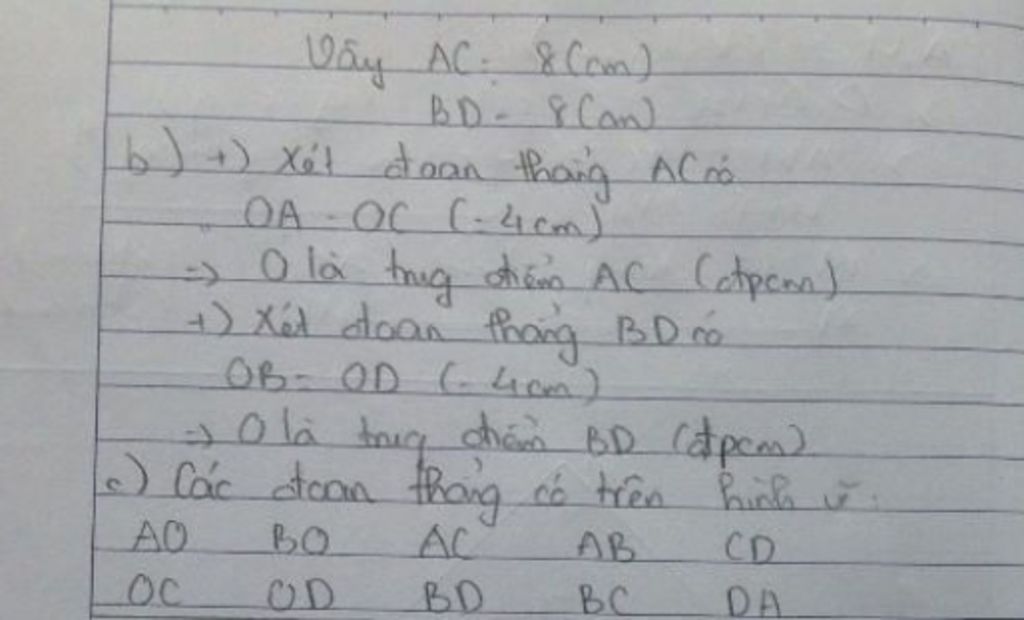 Vậy AC = 8 (cm)
BD = 8 (cm)
b) +) Xét đoạn thẳng AC có
OA = OC (= 4cm)
=> O là trung điểm AC (đpcm)
+) Xét đoạn thẳng BD có
OB = OD (= 4cm)
=> O là trung điểm BD (đpcm)
c) Các đoạn thẳng có trên hình vẽ:
AO BO AC AB CD
OC OD BD BC DA